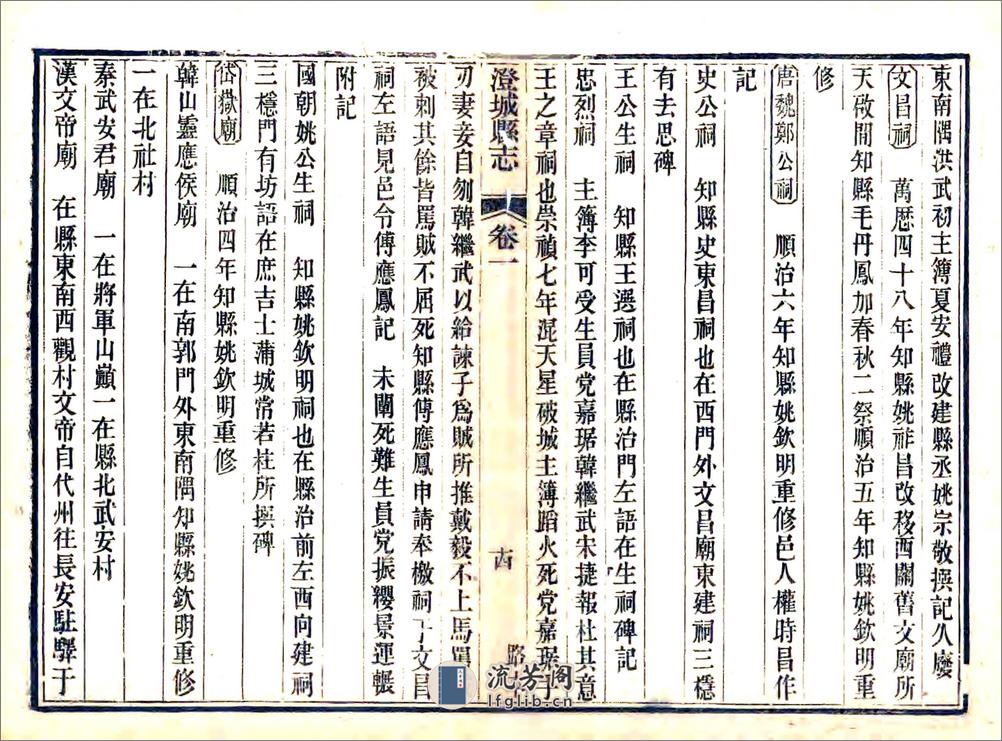 東南隅洪武初主簿夏安禮改建縣丞姚宗敬撰記久廢
文昌祠 萬歷四十八年知縣姚祚昌改移西關舊文廟所
天啟間知縣毛丹鳳加春秋二祭順治五年知縣姚欽明重
修
唐魏鄭公祠 順治六年知縣姚欽明重修邑人權時昌作
記
史公祠 知縣史東昌祠也在西門外文昌廟東建祠三穩
有去思碑
王公生祠 知縣王選祠也在縣治門左語在生祠碑記
忠烈祠 主簿李可受生員党嘉琚韓繼武宋捷報杜其意
王之章祠也崇禎七年混天星破城主簿蹈火死党嘉琚手
澄城縣志 卷一 十四
刃妻妾自刎韓繼武以給諫子為賊所推戴毅不上馬罵
被刺其餘皆罵賊不屈死知縣傅應鳳申請奉檄祠于文昌
祠左語見邑令傅應鳳記 未闡死難生員党振纓景運暢
附記
國朝姚公生祠 知縣姚欽明祠也在縣治前左西向建祠
三穩門有坊語在庶吉士蒲城常若柱所撰碑
岱嶽廟 順治四年知縣姚欽明重修
韓山靈應侯廟 一在南郭門外東南隅知縣姚欽明重修
一在北社村
秦武安君廟 一在將軍山巔一在縣北武安村
漢文帝廟 在縣東南西觀村文帝自代州往長安駐驛于
流芳閣
lfglib.cn